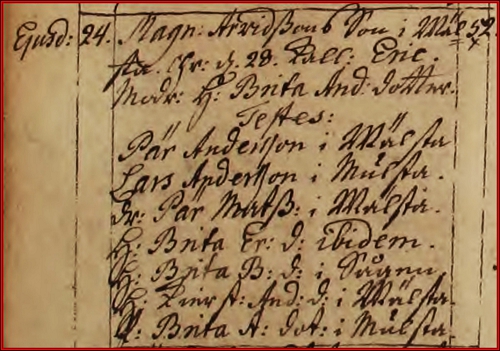 Ejusd: 24. Magn: Arvidßons Son i Wäl 52.
sta. Chr: d. 28. Kall: Eric.
Modr: H: Brita And: dotter.
Testes:
Pär Andersson i Wälsta
Lars Andersson i Mulsta.
dr: Pär Matß: i Wälsta.
H: Brita Er: d: ibidem.
H: Brita B: d: i
H: Kierst: And: d: i Wälsta.
Brita A: dot: i Mulsta.